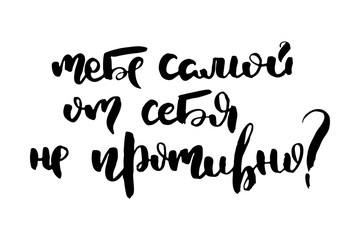 тебе самой
от себя
не противно?